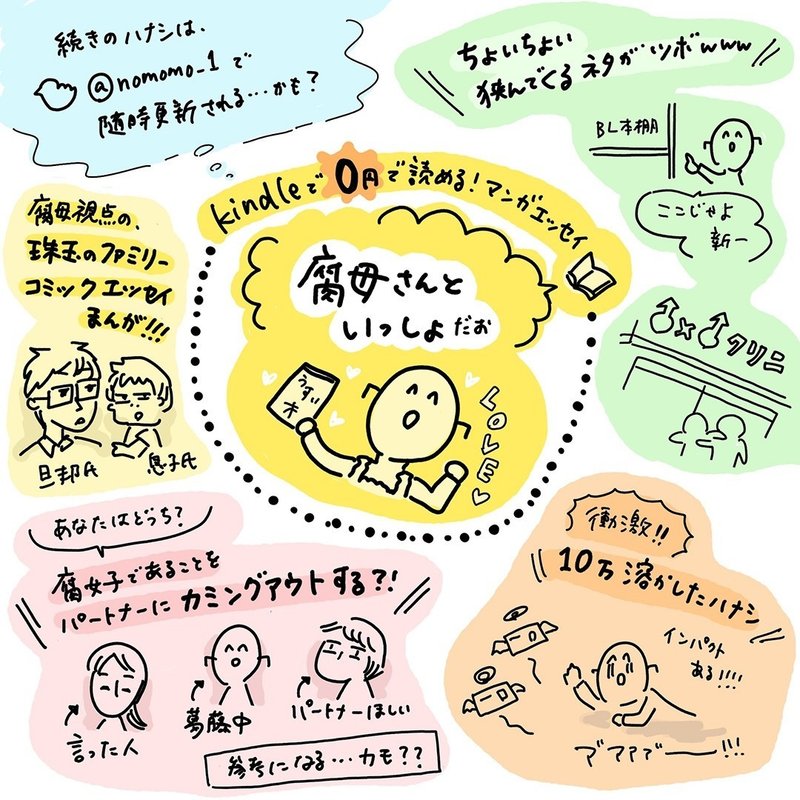 続きのハナシは、
@nomomo_1で
随時更新される…かも?
ちょいちょい
挟んでくるネタが、ツボwww
BL本棚
ここじゃよ
新一
♂×♂クリニ
kindleで0円で読める!マンガエッセイ
腐母さんと
いっしょだお
うすい
本
LOVE
腐母視点の、
珠玉のファミリー
コミックエッセイ
まんが!!!
旦那氏
息子氏
あなたはどっち?
腐女子であることを
パートナーにカミングアウトする?!
言った人
葛藤中
パートナーほしい
参考になる…カモ??
衝激!!
10万溶かしたハナシ
インパクト
ある!!!!